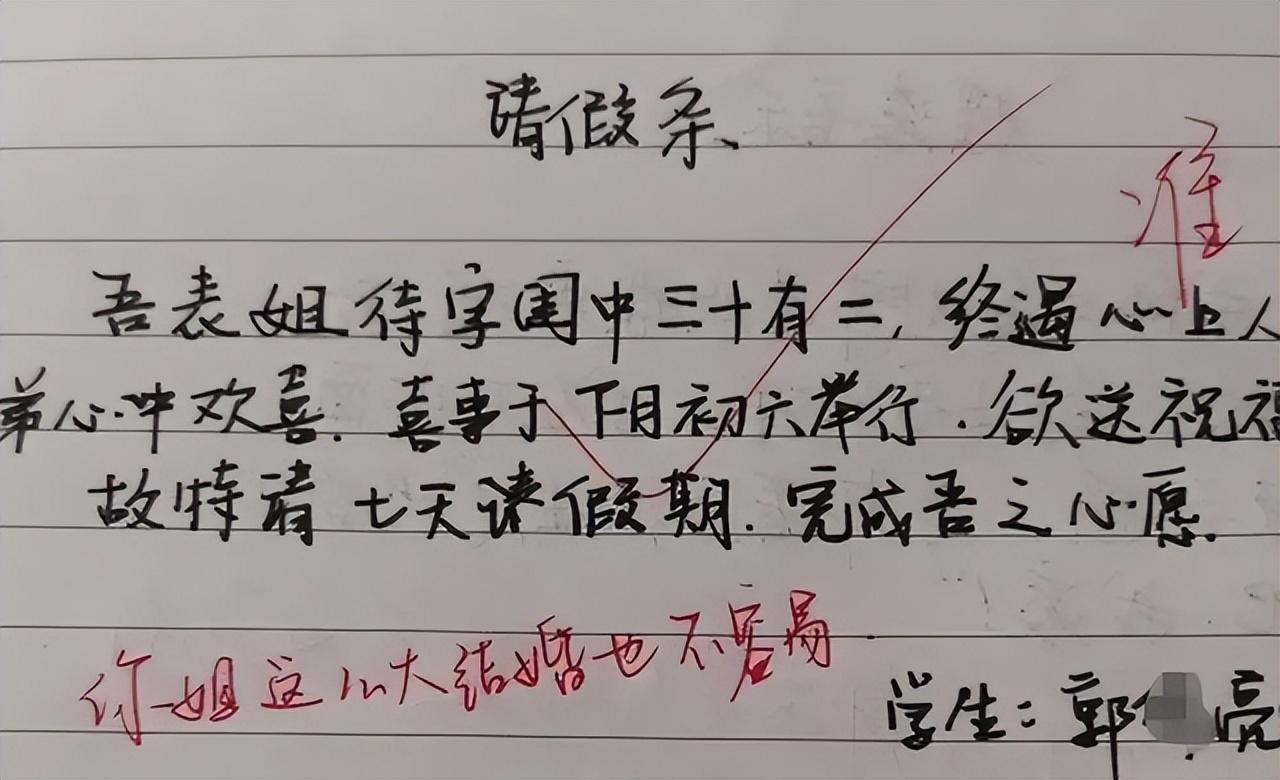 请假条
准
吾表姐待字闺中三十有二，终遇心上人
弟心中欢喜．喜事于下月初六举行．欲送祝福
故特请七天请假期．完成吾之心愿．
你姐这么大结婚也不容易
学生：郭 亮